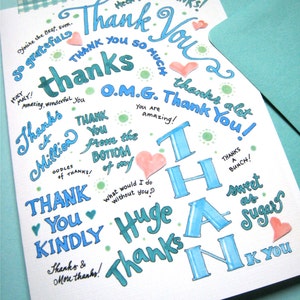 Thank You
You're the Best, Ever.
so grateful
THANK YOU SO MUCH
thanks
thanks a lot
HEY, HEY!
Amazing, wonderful You
O.M.G. Thank You!
You are
amazing!
Thanks
A
Million
THANK
YOU
FROM the
BOTTOM
of my
OODLES
of THANKS!
THANKS
A
BUNCH!
THAN
K YOU
What would I do
without You?
sweet
as
Sugar
THANK
YOU
KINDLY
Huge
Thanks
Thanks &
More thanks!